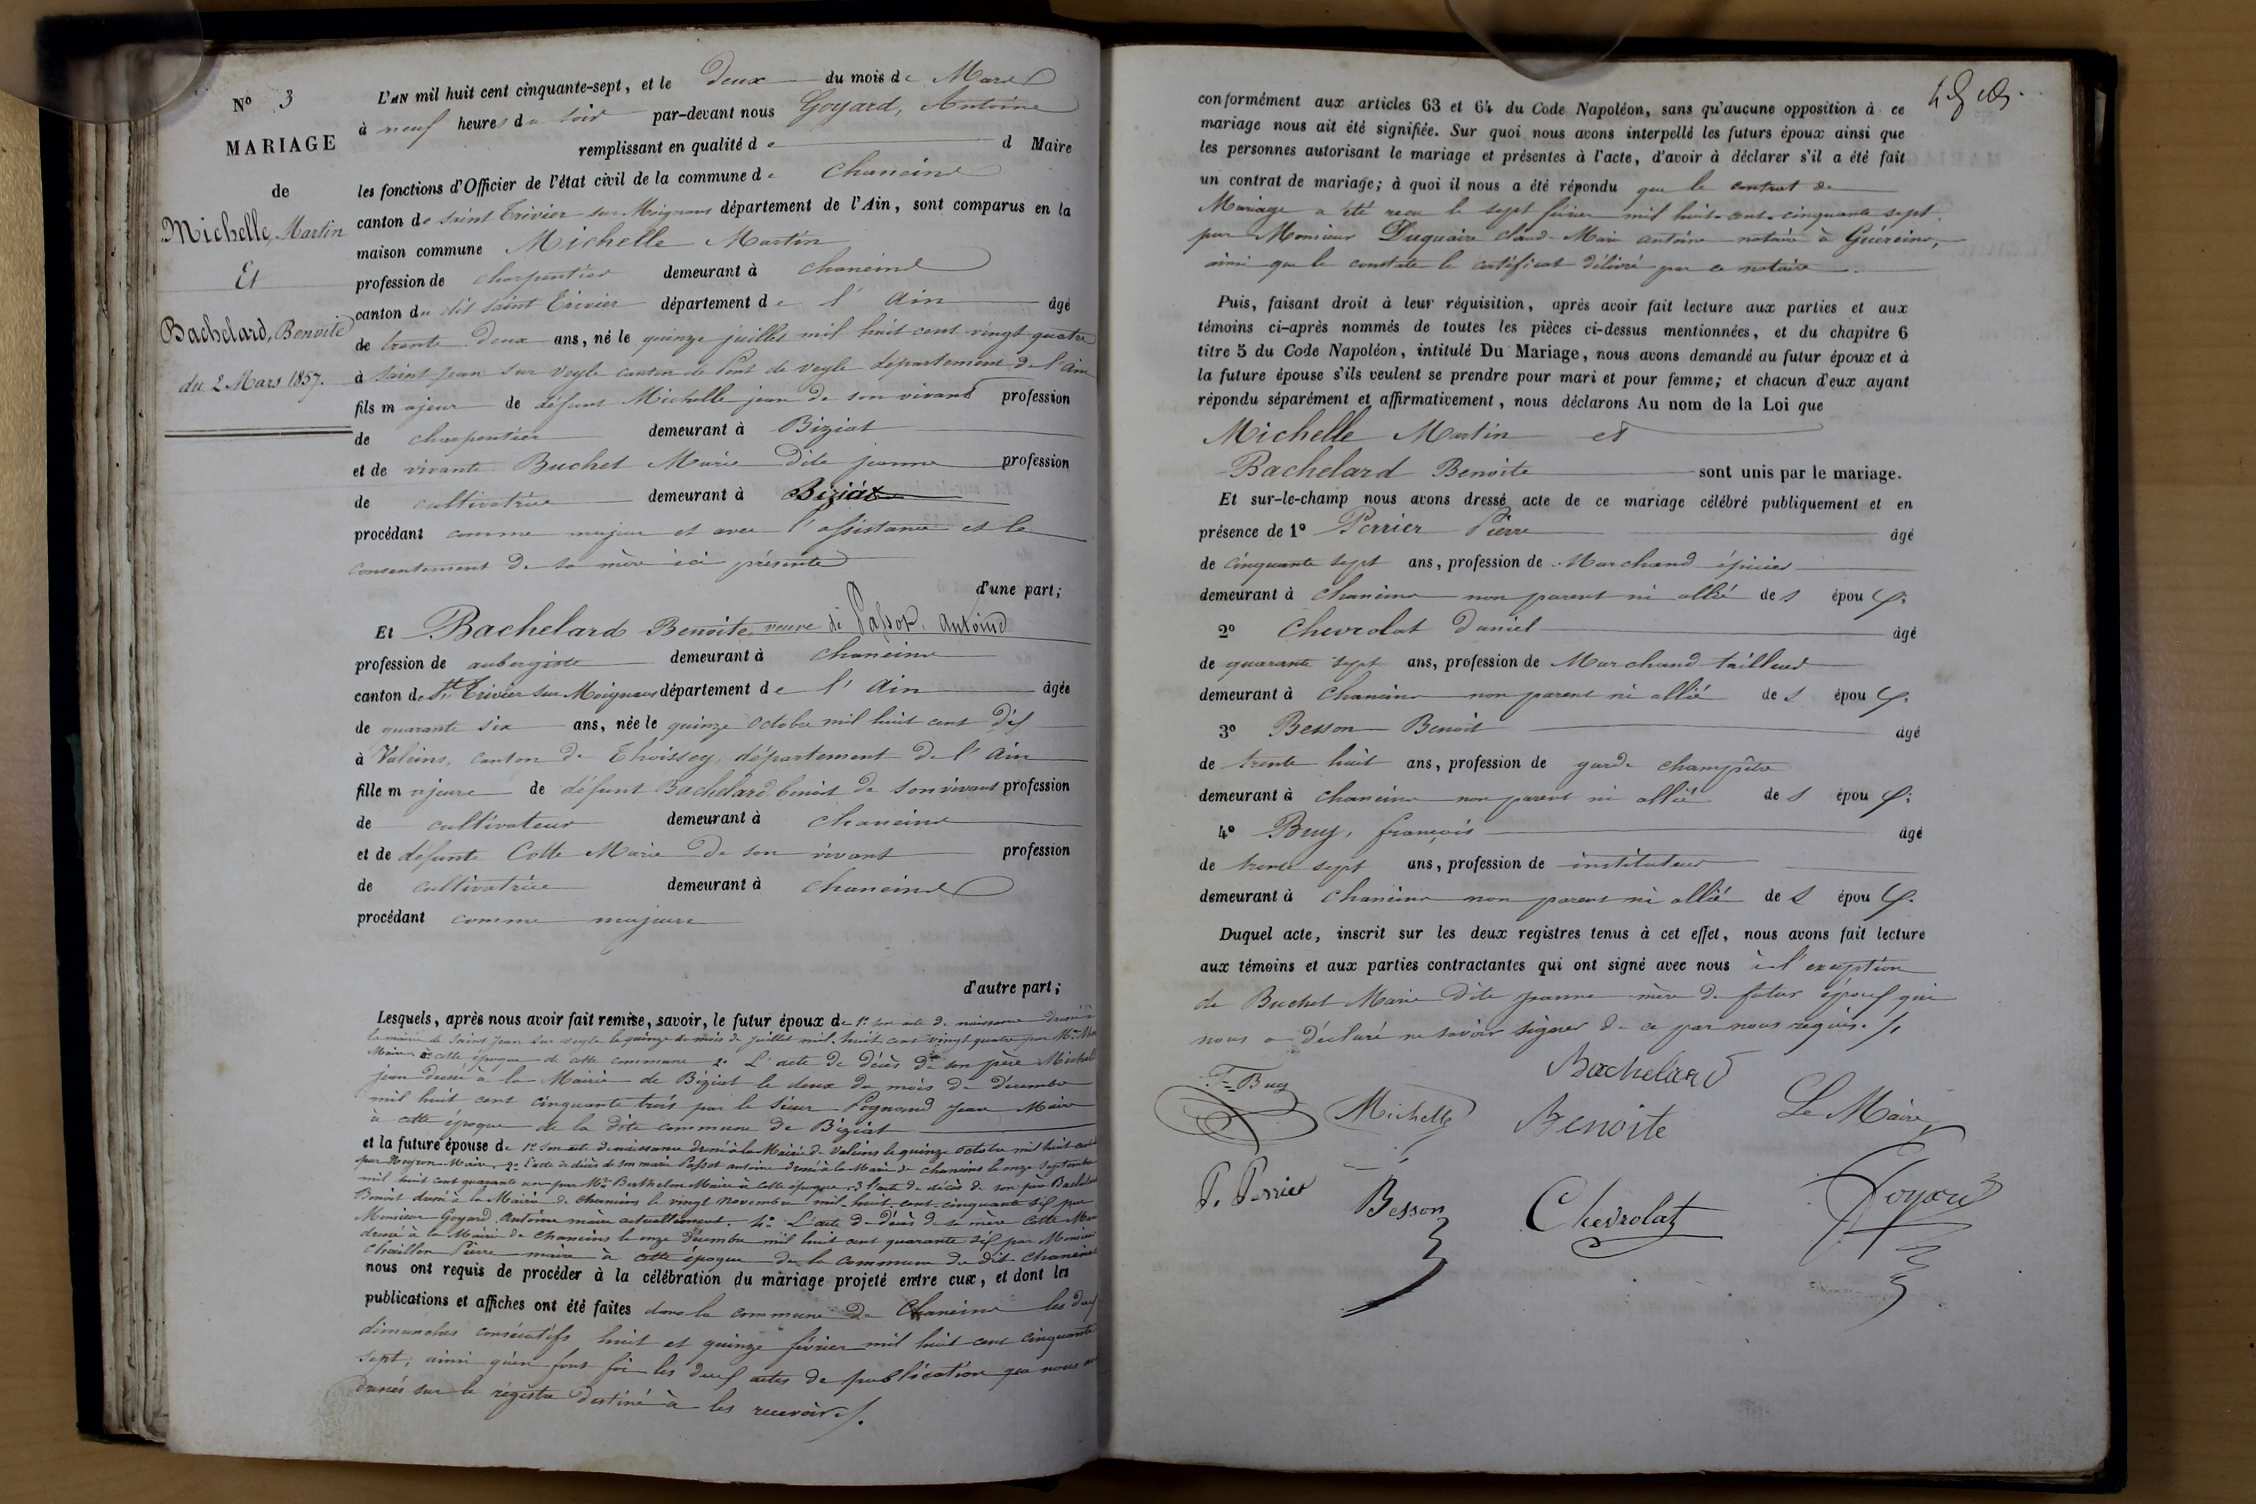 N° 3
MARIAGE
de
Michelle, Martin
Et
Bachelard, Benoite
du 2 Mars 1857.
L'AN mil huit cent cinquante-sept, et le deux du mois de Mars
à neuf heures du soir par-devant nous Goyard, Antoine
remplissant en qualité de d Maire
les fonctions d'Officier de l'état civil de la commune de Chaneins
canton de saint Trivier sur Moignans département de l'Ain, sont comparus en la
maison commune Michelle Martin
profession de charpentier demeurant à chaneins
canton du dit saint Trivier département de l'Ain âgé
de trente deux ans, né le quinze juillet mil huit cent vingt quatre
à saint jean sur veyle canton de Pont de veyle département de l'Ain
fils majeur de défunt Michelle jean de son vivant profession
de charpentier demeurant à Biziat
et de vivante Buchet Marie dite jeanne profession
de cultivatrice demeurant à Biziat
procédant comme majeur et avec l'assistance et le
consentement de sa mère ici présente
d'une part;
Et Bachelard Benoite veuve de Passot, Antoine
profession de aubergiste demeurant à chaneins
canton de St Trivier sur Moignans département de l'Ain âgée
de quarante six ans, née le quinze octobre mil huit cent dix
à Valeins, canton de Thoissey, département de l'Ain
fille majeure de défunt Bachelard benoit de son vivant profession
de cultivateur demeurant à chaneins
et de défunte Cotte Marie de son vivant profession
de cultivatrice demeurant à chaneins
procédant comme majeure
d'autre part;
Lesquels, après nous avoir fait remise, savoir, le futur époux de 1° son acte de naissance dressé à
la mairie de saint jean sur veyle le quinze du mois de juillet mil huit cent vingt quatre par Mr
Maire à cette époque de cette commune 2° L'acte de décès de son père Michelle
jean dressé à la Mairie de Biziat le deux du mois de décembre
mil huit cent cinquante trois par le sieur Pognand jean Maire
à cette époque de la dite commune de Biziat
et la future épouse de 1° son acte de naissance dressé à la Mairie de Valeins le quinze octobre mil huit cent
par Neyron Maire, 2° l'acte de décès de son mari Passot antoine dressé à la Mairie de chaneins le onze septembre
mil huit cent quarante un par Mr. Berthelon Maire à cette époque, 3° l'acte de décès de son père Bachelard
Benoit dressé à la Mairie de chaneins le vingt novembre mil huit cent cinquante six par
Monsieur Goyard Antoine maire actuellement. 4° L'acte de décès de sa mère Cotte Marie
dressé à la Mairie de chaneins le onze décembre mil huit cent quarante six par Monsieur
Chaillon Pierre maire à cette époque de la commune du dit chaneins
nous ont requis de procéder à la célébration du mariage projeté entre eux, et dont les
publications et affiches ont été faites dans la commune de Chaneins les deux
dimanches consécutifs huit et quinze février mil huit cent cinquante
sept; ainsi qu'en font foi les deux actes de publication que nous avons
dressés sur le registre destiné à les recevoir.
conformément aux articles 63 et 64 du Code Napoléon, sans qu'aucune opposition à ce
mariage nous ait été signifiée. Sur quoi nous avons interpellé les futurs époux ainsi que
les personnes autorisant le mariage et présentes à l'acte, d'avoir à déclarer s'il a été fait
un contrat de mariage; à quoi il nous a été répondu que le contrat de
Mariage a été reçu le sept février mil huit-cent-cinquante sept,
par Monsieur Duquaire claud-Marie antoine notaire à Guéreins,
ainsi que le constate le certificat délivré par ce notaire.
Puis, faisant droit à leur réquisition, après avoir fait lecture aux parties et aux
témoins ci-après nommés de toutes les pièces ci-dessus mentionnées, et du chapitre 6
titre 5 du Code Napoléon, intitulé Du Mariage, nous avons demandé au futur époux et à
la future épouse s'ils veulent se prendre pour mari et pour femme; et chacun d'eux ayant
répondu séparément et affirmativement, nous déclarons Au nom de la Loi que
Michelle Martin et
Bachelard Benoite sont unis par le mariage.
Et sur-le-champ nous avons dressé acte de ce mariage célébré publiquement et en
présence de 1° Perrier Pierre âgé
de cinquante sept ans, profession de Marchand épicier
demeurant à chaneins non parent ni allié des époux.
2° Chevrolat Daniel âgé
de quarante sept ans, profession de Marchand tailleur
demeurant à chaneins non parent ni allié des époux.
3° Besson Benoit âgé
de trente huit ans, profession de garde champêtre
demeurant à chaneins non parent ni allié des époux.
4° Buy, françois âgé
de trente sept ans, profession de instituteur
demeurant à chaneins non parent ni allié des époux.
Duquel acte, inscrit sur les deux registres tenus à cet effet, nous avons fait lecture
aux témoins et aux parties contractantes qui ont signé avec nous à l'exception
de Buchet Marie dite jeanne mère du futur époux qui
nous a déclaré ne savoir signer de ce par nous requis.
Bachelard
F. Buy Michelle Benoite Le Maire,
P. Perrier Besson Chevrolat Goyard